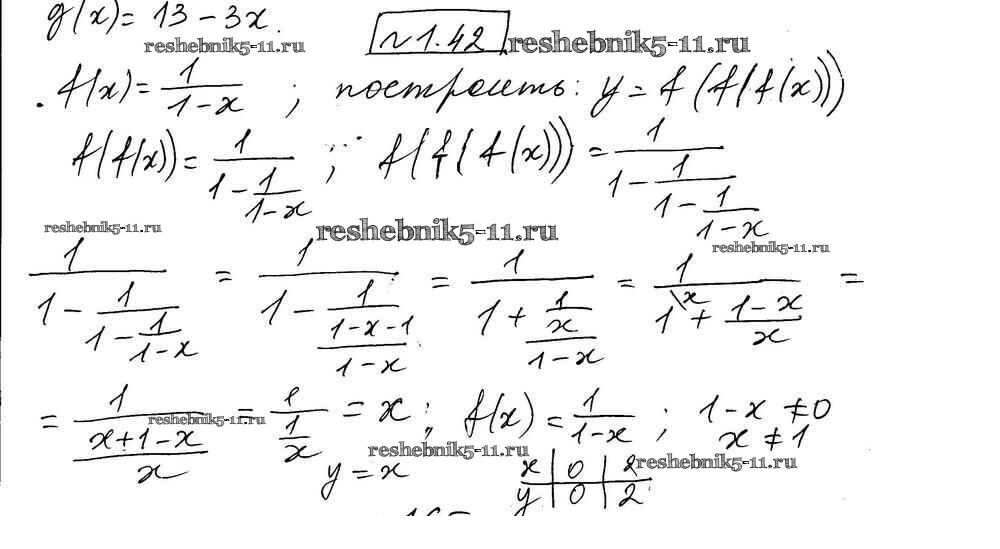 g(x) = 13 - 3x.
reshebnik5-11.ru
№1.42 reshebnik5-11.ru
f(x) = 1/(1-x) ; построить: y = f(f(f(x)))
f(f(x)) = 1/(1 - 1/(1-x)) ; f(f(f(x))) = 1/(1 - 1/(1 - 1/(1-x)))
reshebnik5-11.ru reshebnik5-11.ru reshebnik5-11.ru
1/(1 - 1/(1 - 1/(1-x))) = 1/(1 - 1/((1-x-1)/(1-x))) = 1/(1 + 1/(x/(1-x))) = 1/(1\x + (1-x)/x) =
= 1/((x+1-x)/x) = 1/(1/x) = x ; f(x) = 1/(1-x) ; 1-x ≠ 0
x ≠ 1
reshebnik5-11.ru
reshebnik5-11.ru reshebnik5-11.ru
y = x
x | 0 | 2
y | 0 | 2